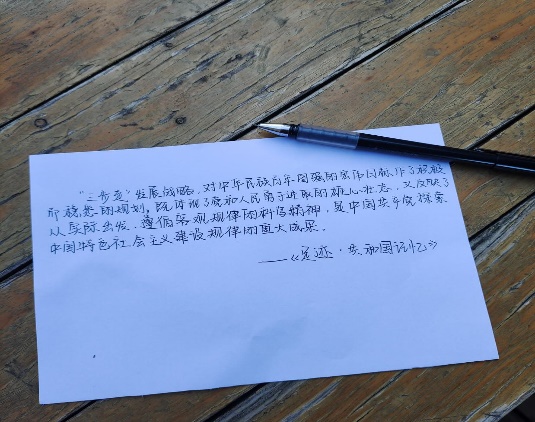 “三步走”发展战略，对中华民族百年图强的宏伟目标作了积极
而稳妥的规划，既体现了党和人民勇于进取的雄心壮志，又反映了
从实际出发，遵循客观规律的科学精神，是中国共产党探索
中国特色社会主义建设规律的重大成果。
——《足迹·共和国记忆》